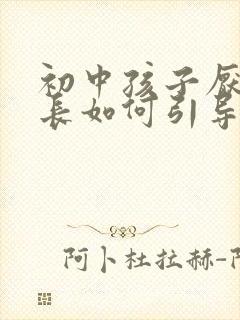 初中孩子厌
长如何引导
阿卜杜拉赫-阿